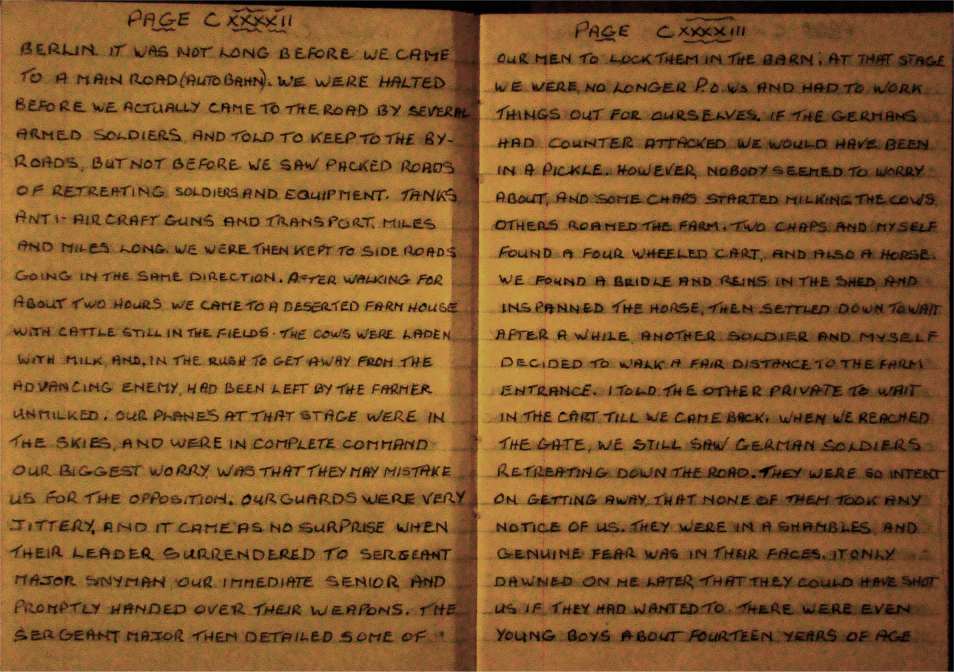 PAGE CXXXXII
BERLIN. IT WAS NOT LONG BEFORE WE CAME
TO A MAIN ROAD (AUTOBAHN). WE WERE HALTED
BEFORE WE ACTUALLY CAME TO THE ROAD BY SEVERAL
ARMED SOLDIERS, AND TOLD TO KEEP TO THE BY-
ROADS, BUT NOT BEFORE WE SAW PACKED ROADS
OF RETREATING SOLDIERS AND EQUIPMENT. TANKS,
ANTI-AIRCRAFT GUNS AND TRANSPORT, MILES
AND MILES LONG. WE WERE THEN KEPT TO SIDE ROADS
GOING IN THE SAME DIRECTION. AFTER WALKING FOR
ABOUT TWO HOURS WE CAME TO A DESERTED FARM HOUSE
WITH CATTLE STILL IN THE FIELDS. THE COWS WERE LADEN
WITH MILK, AND, IN THE RUSH TO GET AWAY FROM THE
ADVANCING ENEMY, HAD BEEN LEFT BY THE FARMER
UNMILKED. OUR PLANES AT THAT STAGE WERE IN
THE SKIES, AND WERE IN COMPLETE COMMAND
OUR BIGGEST WORRY WAS THAT THEY MAY MISTAKE
US FOR THE OPPOSITION. OUR GUARDS WERE VERY
JITTERY, AND IT CAME AS NO SURPRISE WHEN
THEIR LEADER SURRENDERED TO SERGEANT
MAJOR SNYMAN OUR IMMEDIATE SENIOR AND
PROMPTLY HANDED OVER THEIR WEAPONS. THE
SERGEANT MAJOR THEN DETAILED SOME OF
PAGE CXXXXIII
OUR MEN TO LOCK THEM IN THE BARN; AT THAT STAGE
WE WERE NO LONGER P.O.WS AND HAD TO WORK
THINGS OUT FOR OURSELVES. IF THE GERMANS
HAD COUNTER ATTACKED WE WOULD HAVE BEEN
IN A PICKLE. HOWEVER, NOBODY SEEMED TO WORRY
ABOUT, AND SOME CHAPS STARTED MILKING THE COWS,
OTHERS ROAMED THE FARM. TWO CHAPS AND MYSELF
FOUND A FOUR WHEELED CART, AND ALSO A HORSE.
WE FOUND A BRIDLE AND REINS IN THE SHED, AND
INSPANNED THE HORSE, THEN SETTLED DOWN TO WAIT
AFTER A WHILE, ANOTHER SOLDIER AND MYSELF
DECIDED TO WALK A FAIR DISTANCE TO THE FARM
ENTRANCE. I TOLD THE OTHER PRIVATE TO WAIT
IN THE CART TILL WE CAME BACK. WHEN WE REACHED
THE GATE, WE STILL SAW GERMAN SOLDIERS
RETREATING DOWN THE ROAD. THEY WERE SO INTENT
ON GETTING AWAY, THAT NONE OF THEM TOOK ANY
NOTICE OF US. THEY WERE IN A SHAMBLES, AND
GENUINE FEAR WAS IN THEIR FACES. IT ONLY
DAWNED ON ME LATER, THAT THEY COULD HAVE SHOT
US IF THEY HAD WANTED TO. THERE WERE EVEN
YOUNG BOYS ABOUT FOURTEEN YEARS OF AGE